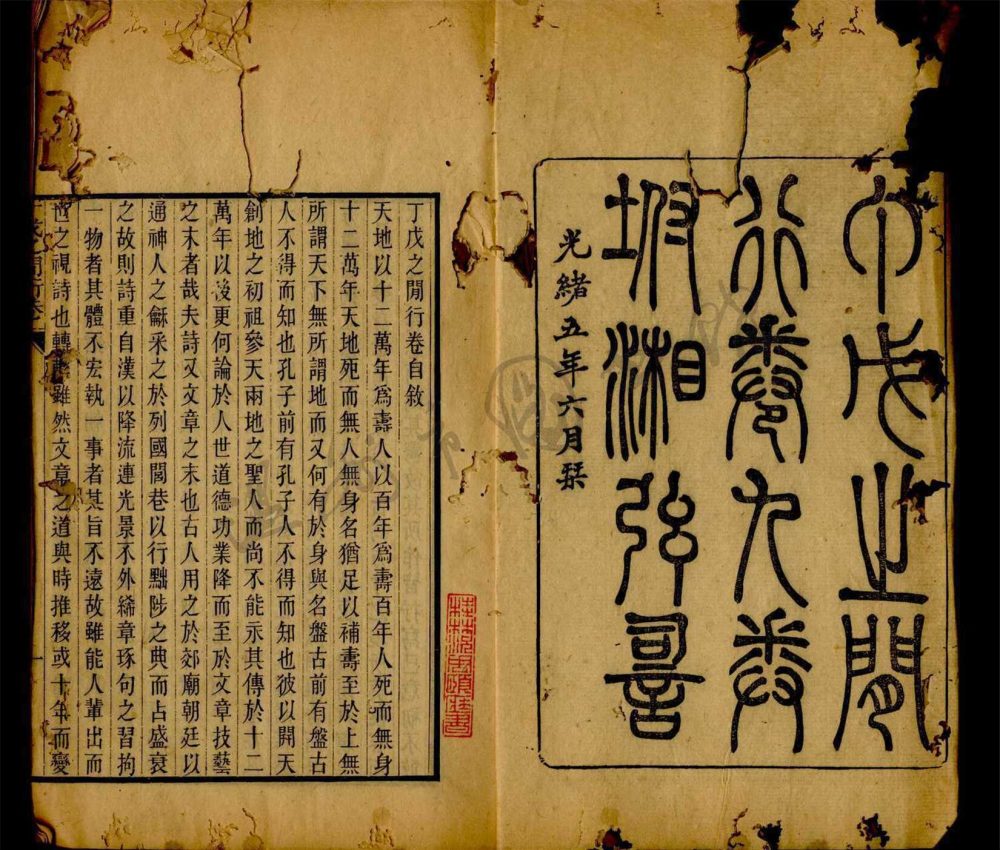 丁戊之閒
行卷九卷
坿湘弦詞
光緒五年六月栞
丁戊之閒行卷自敘
天地以十二萬年爲壽人以百年爲壽百年人死而無身
十二萬年天地死而無人無身名猶足以補壽至於上無
所謂天下無所謂地而又何有於身與名盤古前有盤古
人不得而知也孔子前有孔子人不得而知也彼以開天
創地之初祖參天兩地之聖人而尚不能示其傳於十二
萬年以後更何論於人世道德功業降而至於文章技藝
之末者哉夫詩又文章之末也古人用之於郊廟朝廷以
通神人之龢采之於列國閭巷以行黜陟之典而占盛衰
之故則詩重自漢以降流連光景不外絺章琢句之習拘
一物者其體不宏執一事者其旨不遠故雖能人輩出而
世之視詩也轉輕雖然文章之道與時推移或十年而變